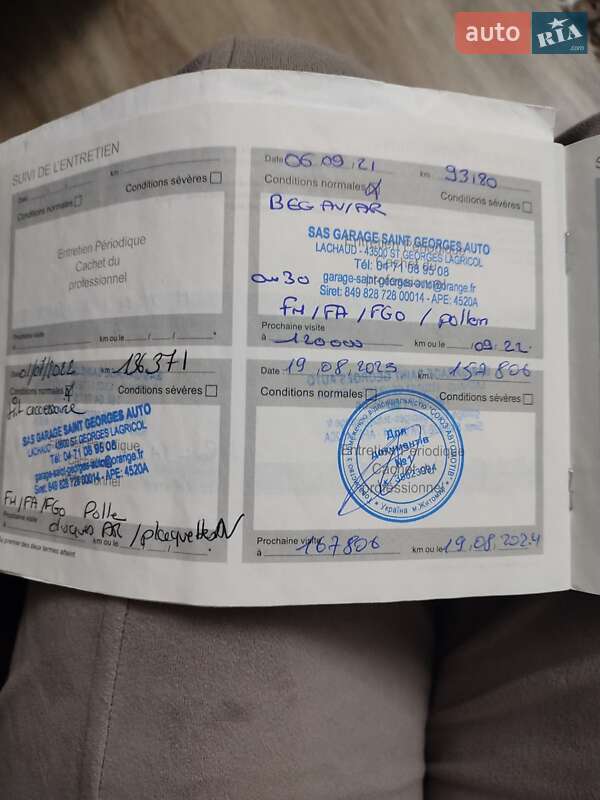 auto RIA .com
SUIVI DE L'ENTRETIEN
Date / / km
Conditions normales Conditions sévères
Entretien Périodique
Cachet du
professionnel
Prochaine visite
à km ou le / /
Date 06 09.21 km 93180
Conditions normales
Conditions sévères
SAS GARAGE SAINT GEORGES AUTO
LACHAUD - 43500 ST GEORGES LAGRICOL
Tél: 04 71 08 95 08
garage-saint-georges-auto@orange.fr
Siret: 849 828 728 00014 - APE: 4520A
FH/FA/FGO / pollen
Prochaine visite
à 120000 km ou le 09.22
01/07/2022 km 136371
Conditions normales Conditions sévères
SAS GARAGE SAINT GEORGES AUTO
LACHAUD - 43500 ST GEORGES LAGRICOL
Tél: 04 71 08 95 08
garage-saint-georges-auto@orange.fr
Siret: 849 828 728 00014 - APE: 4520A
FH/FA/FGO Pollen
Prochaine visite
disques AR/plaquettes AV
à km ou le
au premier des deux termes atteint
Date 19.08.2023 km 157806
Conditions normales Conditions sévères
Entretien Périodique
Cachet du
professionnel
Для
документів
№1
Україна м.Житомир
Prochaine visite
à 167806 km ou le 19.08.2024